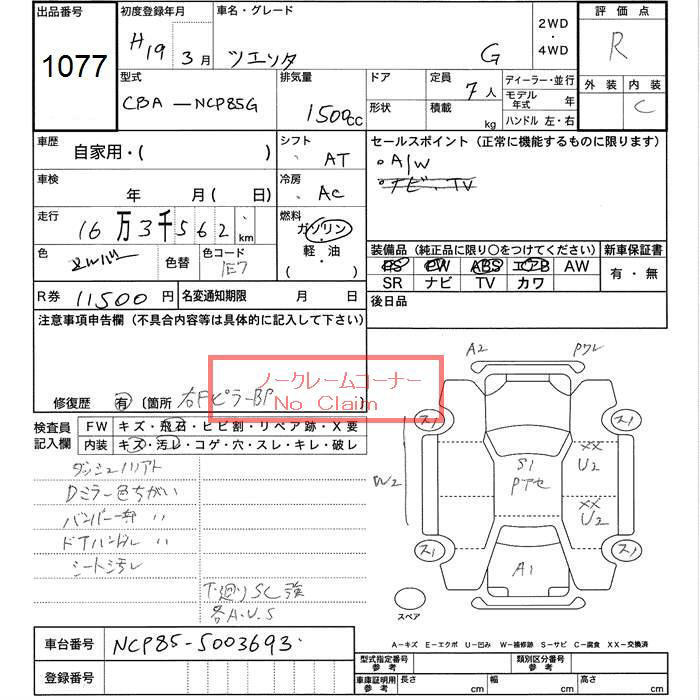 出品番号
1077
初度登録年月
H19 3月
車名・グレード
G
2WD
・
4WD
評価点
R
外装 内装
C
型式
CBA-NCP85G
排気量
1500cc
ドア
形状
定員
7人
積載
kg
ディーラー・並行
モデル年式 年
ハンドル 左・右
車歴
自家用・( )
シフト
AT
車検
年 月( 日)
冷房
AC
走行
16万3千562km
燃料
ガソリン
・
軽・油
( )
色
シルバー
色替
色コード
1E7
R券 11500円
名変通知期限 月 日
セールスポイント (正常に機能するものに限ります)
・A/W
・ナビ、TV
装備品 (純正品に限り○をつけてください)
PS PW ABS エアB AW
SR ナビ TV カワ
新車保証書
有・無
後日品
注意事項申告欄 (不具合内容等は具体的に記入して下さい)
ノークレームコーナー
No Claim
修復歴 有 (箇所 右FピラーBP )
検査員記入欄
FW キズ・飛石・ヒビ割・リペア跡・X要
内装 キズ・汚レ・コゲ・穴・スレ・キレ・破レ
ダッシュノリアト
Dミラー色ちがい
バンパー一部 〃
ドアハンドル 〃
シート汚レ
下廻りSC強
各A.U.S
A2
Pワレ
ス1
ス1
W2
S1
Pアセ
XX
U2
XX
U2
ス1
ス1
A1
スペア
A-キズ E-エクボ U-凹み W-補修跡 S-サビ C-腐食 XX-交換済
車台番号 NCP85-5003693
登録番号
型式指定番号 参考
類別区分番号 参考
車庫証明用 参考
長さ cm
幅 cm
高さ cm